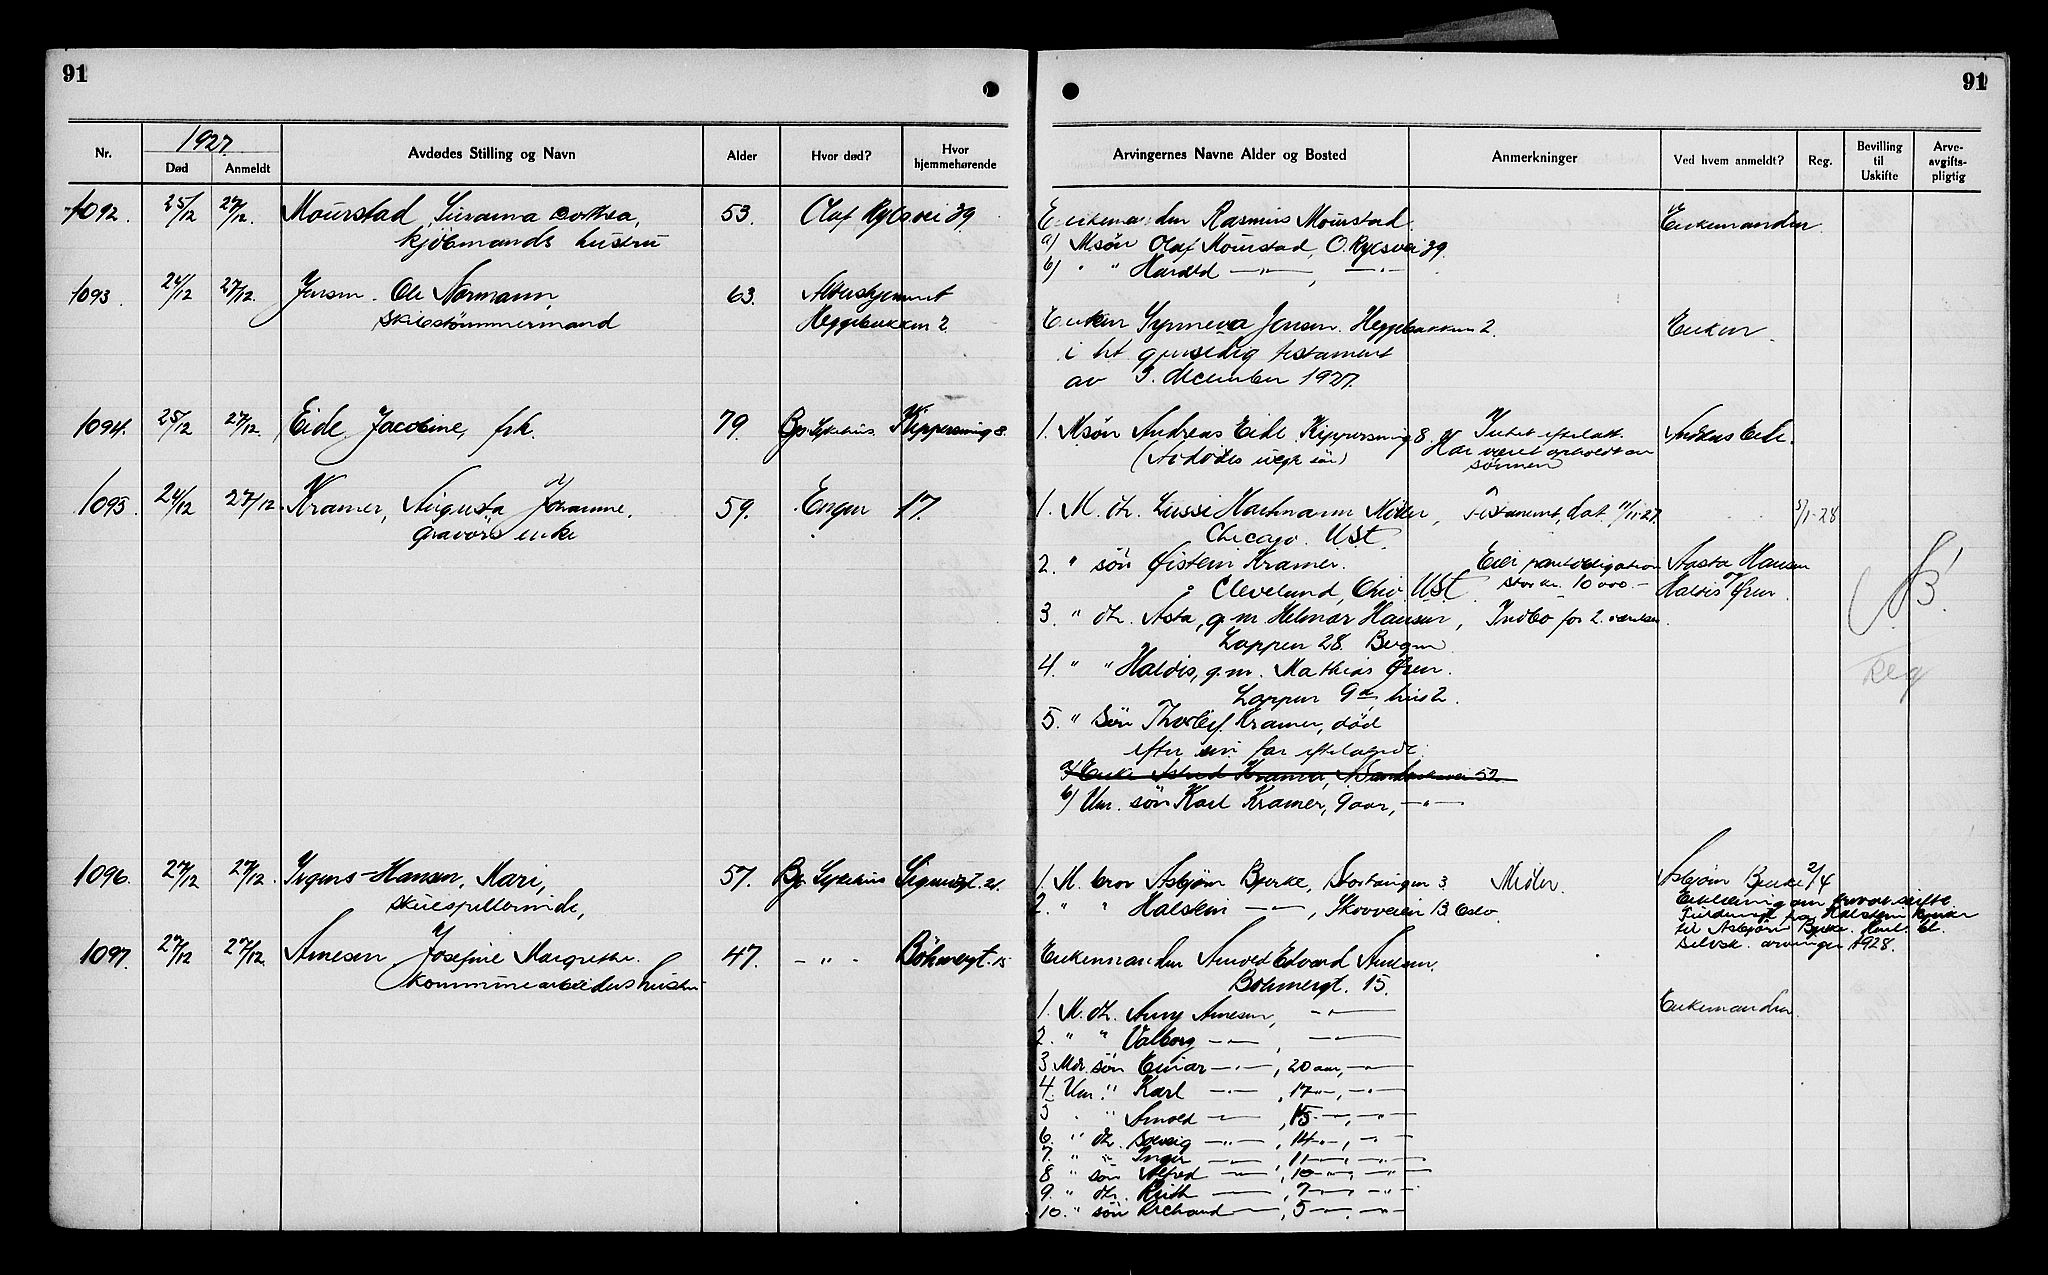 91
91
Nr.
1927
Død
Anmeldt
Avdødes Stilling og Navn
Alder
Hvor død?
Hvor hjemmehørende
Arvingernes Navne Alder og Bosted
Anmerkninger
Ved hvem anmeldt?
Reg.
Bevilling til Uskifte
Arve-avgifts-pligtig
1092. 25/12 27/12. Mourstad, Dorthea, 53. Olaf Ryesvei 39.
kjøbmands hustru
Enkemanden Rasmus Mourstad. Enkemanden.
a) M søn Olaf Mourstad, O. Ryesvei 39.
b) " " Harald —"— , —"—
1093. 24/12 27/12. Jensen. Ole Normann, 63. Altershjemmet
skibstømmermand Heggebakken 2.
Enken Synneva Jensen. Heggebakken 2. Enken.
i ht gjensidig testament
av 3. december 1927.
1094. 25/12 27/12. Eide, Jacobine, frk. 79. Bg. Sykehus. Kippersmug 8.
1. M søn Andreas Eide Kippersmug 8. Intet efterlatt. Andreas Eide.
(Avdødes uegte søn) Har været underholdt av
sønnen
1095. 24/12 27/12. Kramer, Augusta Johanne, 59. Engen 17.
gravørs enke
1. M. dt. Lussi Hartmann Møller, Testament, dat. 11/11-27. 3/1-28
Chicago. U.St.
2. " søn Øistein Kramer. Eier pantobligation Aasta Hansen
Cleveland, Ohio. U.St. stor kr. 10 000.— og Haldis Øren.
3. " dt. Asta, g.m. Helmar Hansen, Indbo for 2. værelser.
Lappen 28. Bergen
4. " " Haldis, g.m. Mathias Øren.
Lappen 9 d, hus 2.
5. " søn Thorleif Kramer, død
efter sin far efterlatende:
a) Enke Astrid Kramer, 52
b) Um. søn Karl Kramer, 9 aar, —"—
Reg
1096. 27/12 27/12. Irgens-Hansen, Mari, 57. Bg. Sykehus Sigurdsgt. 21.
skuespillerinde,
1. M. bror Asbjørn Bjerke, Stortingen 3. Midler. Asbjørn Bjerke 2/4
2. " " Halstein —"—, Skovveien 13 Oslo.
Erklæring om privat skifte
fra Halstein Bjerke
til Asbjørn Bjerke.
selvsk. arvinger 1928.
1097. 27/12 27/12. Arnesen, Josefine Margrethe. 47. —"— Böhmergt. 15
kommunearbeiders hustru
Enkemanden Arnold Edvard Arnesen.
Böhmergt. 15.
1. M. dt. Anny Arnesen, —"— Enkemanden.
2. " " Valborg —"— , —"—
3. Mdr. søn Einar —"— , 20 aar, —"—
4. Um. " Karl —"— , 17 —"—, —"—
5. " " Arnold —"— , 15 —"—, —"—
6. " dt. Solveig —"— , 14 —"—, —"—
7. " " Inger —"— , 11 —"—, —"—
8. " søn Alfred —"— , 10 —"—, —"—
9. " dt. Ruth —"— , 7 —"—, —"—
10. " søn Richard —"— , 5 —"—, —"—